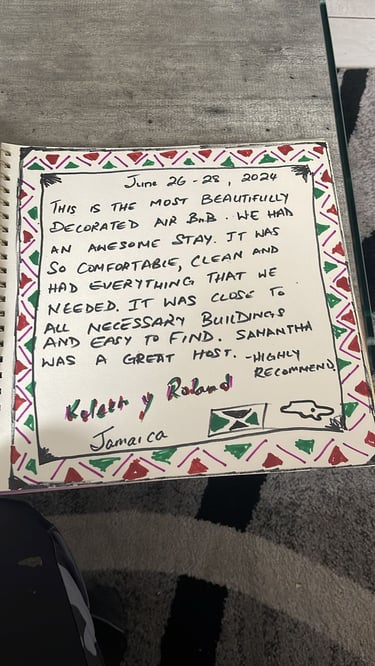 June 26-28, 2024
THIS IS THE MOST BEAUTIFULLY
DECORATED AIR BnB. WE HAD
AN AWESOME STAY. IT WAS
SO COMFORTABLE, CLEAN AND
HAD EVERYTHING THAT WE
NEEDED. IT WAS CLOSE TO
ALL NECESSARY BUILDINGS
AND EASY TO FIND. SAMANTHA
WAS A GREAT HOST. -HIGHLY
RECOMMEND.
y Roland
Jamaica